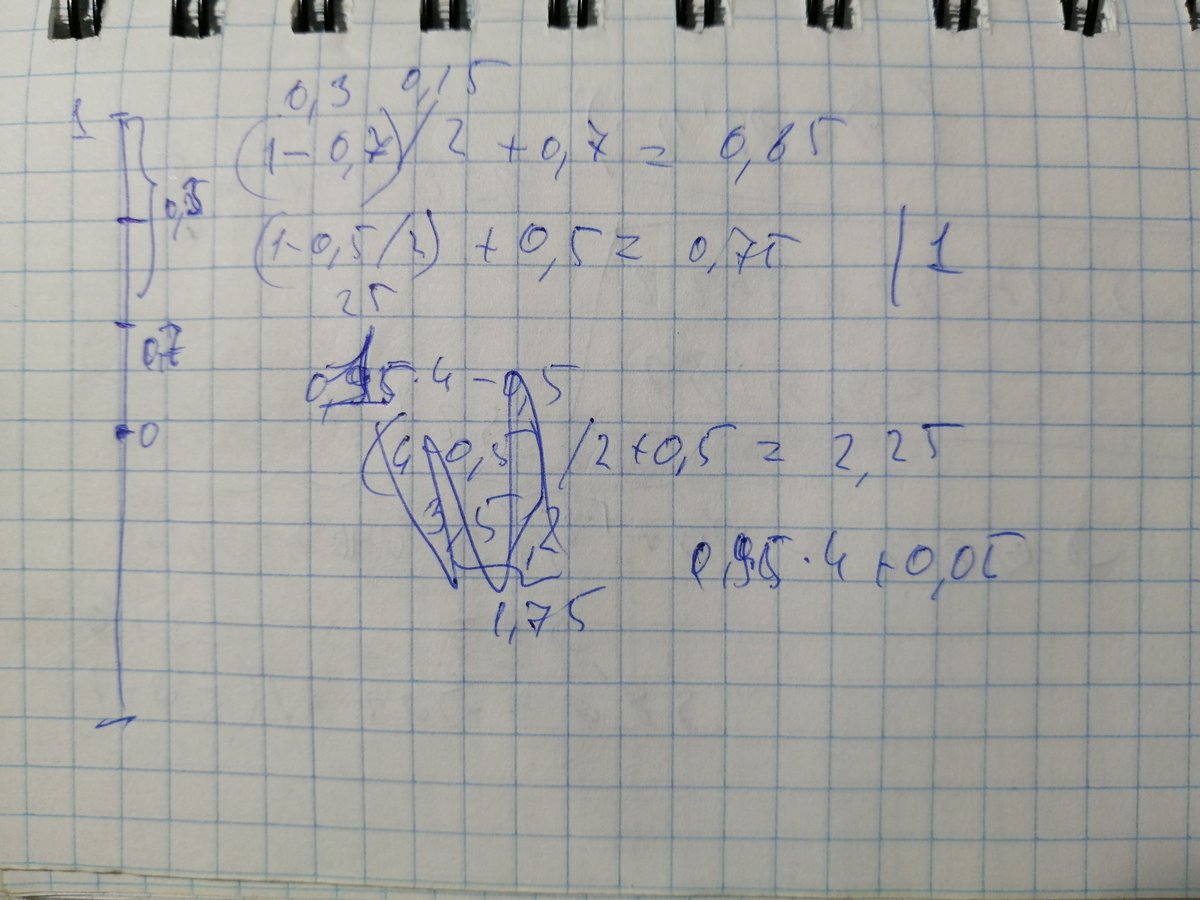 0,3 0,15
1
(1-0,7)/2 +0,7 = 0,85
(1-0,5/2) +0,5 = 0,75 | 1
25
0,7
·4 -0,5
0
(4-0,5 /2 +0,5 = 2,25
3,5 / 2
·4 +0,05
1,75